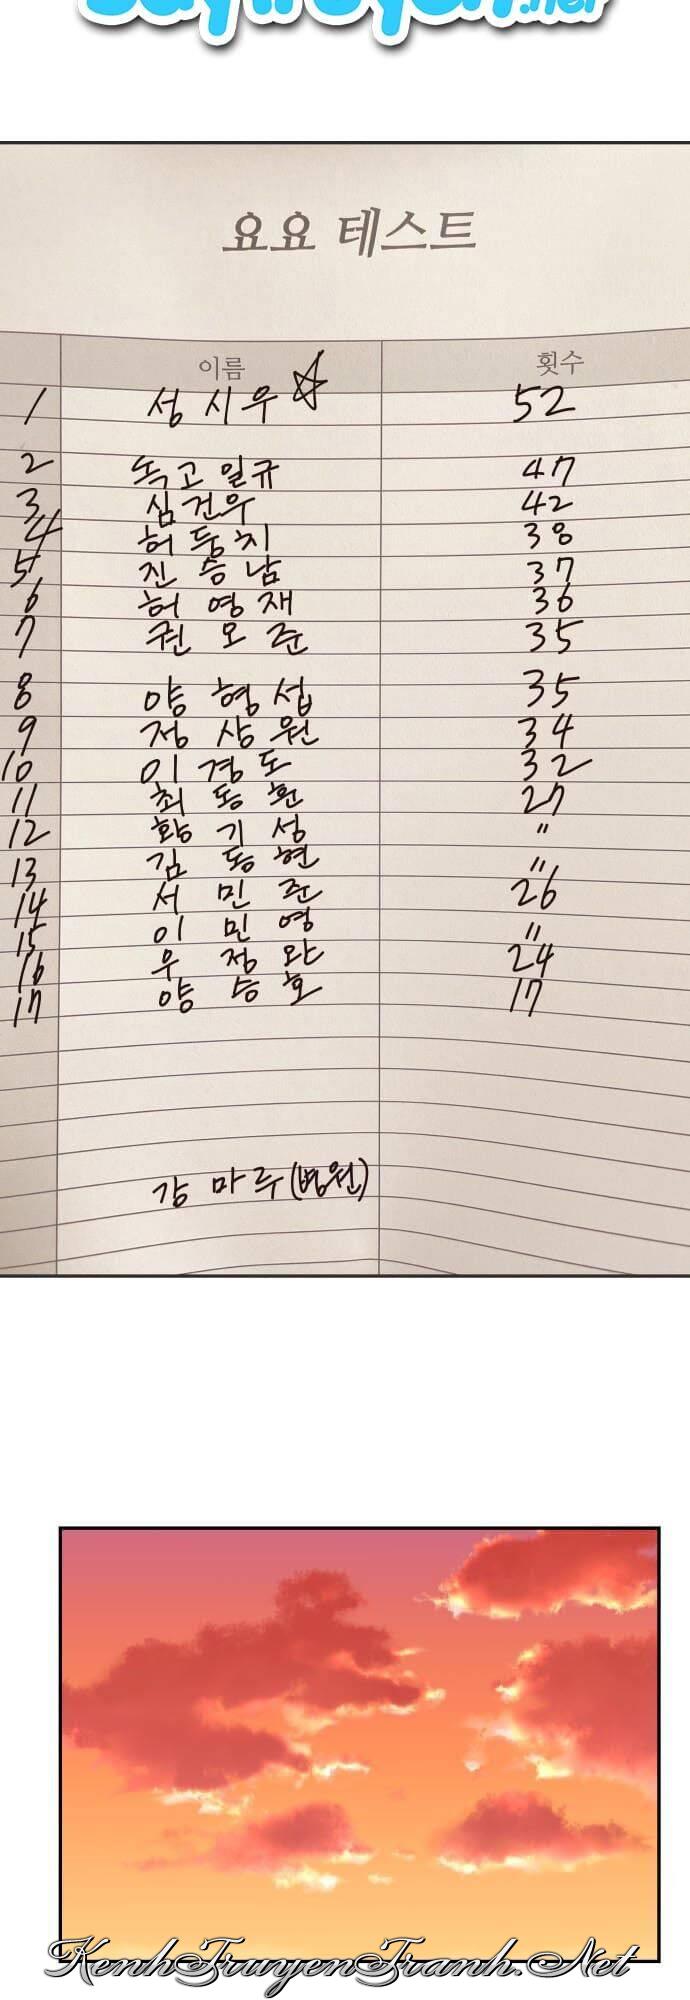 요요 테스트
이름 횟수
1 성시우☆ 52
2 독고일규 47
3 심건우 42
4 허둥치 38
5 진승남 37
6 허영재 36
7 권오준 35
8 양형섭 35
9 정상원 34
10 이경도 32
11 최동훈 27
12 황기성 〃
13 김동현 〃
14 서민준 26
15 이민영 〃
16 우정완 24
17 양승호 17
강마루(병원)
KenhTruyenTranh.Net